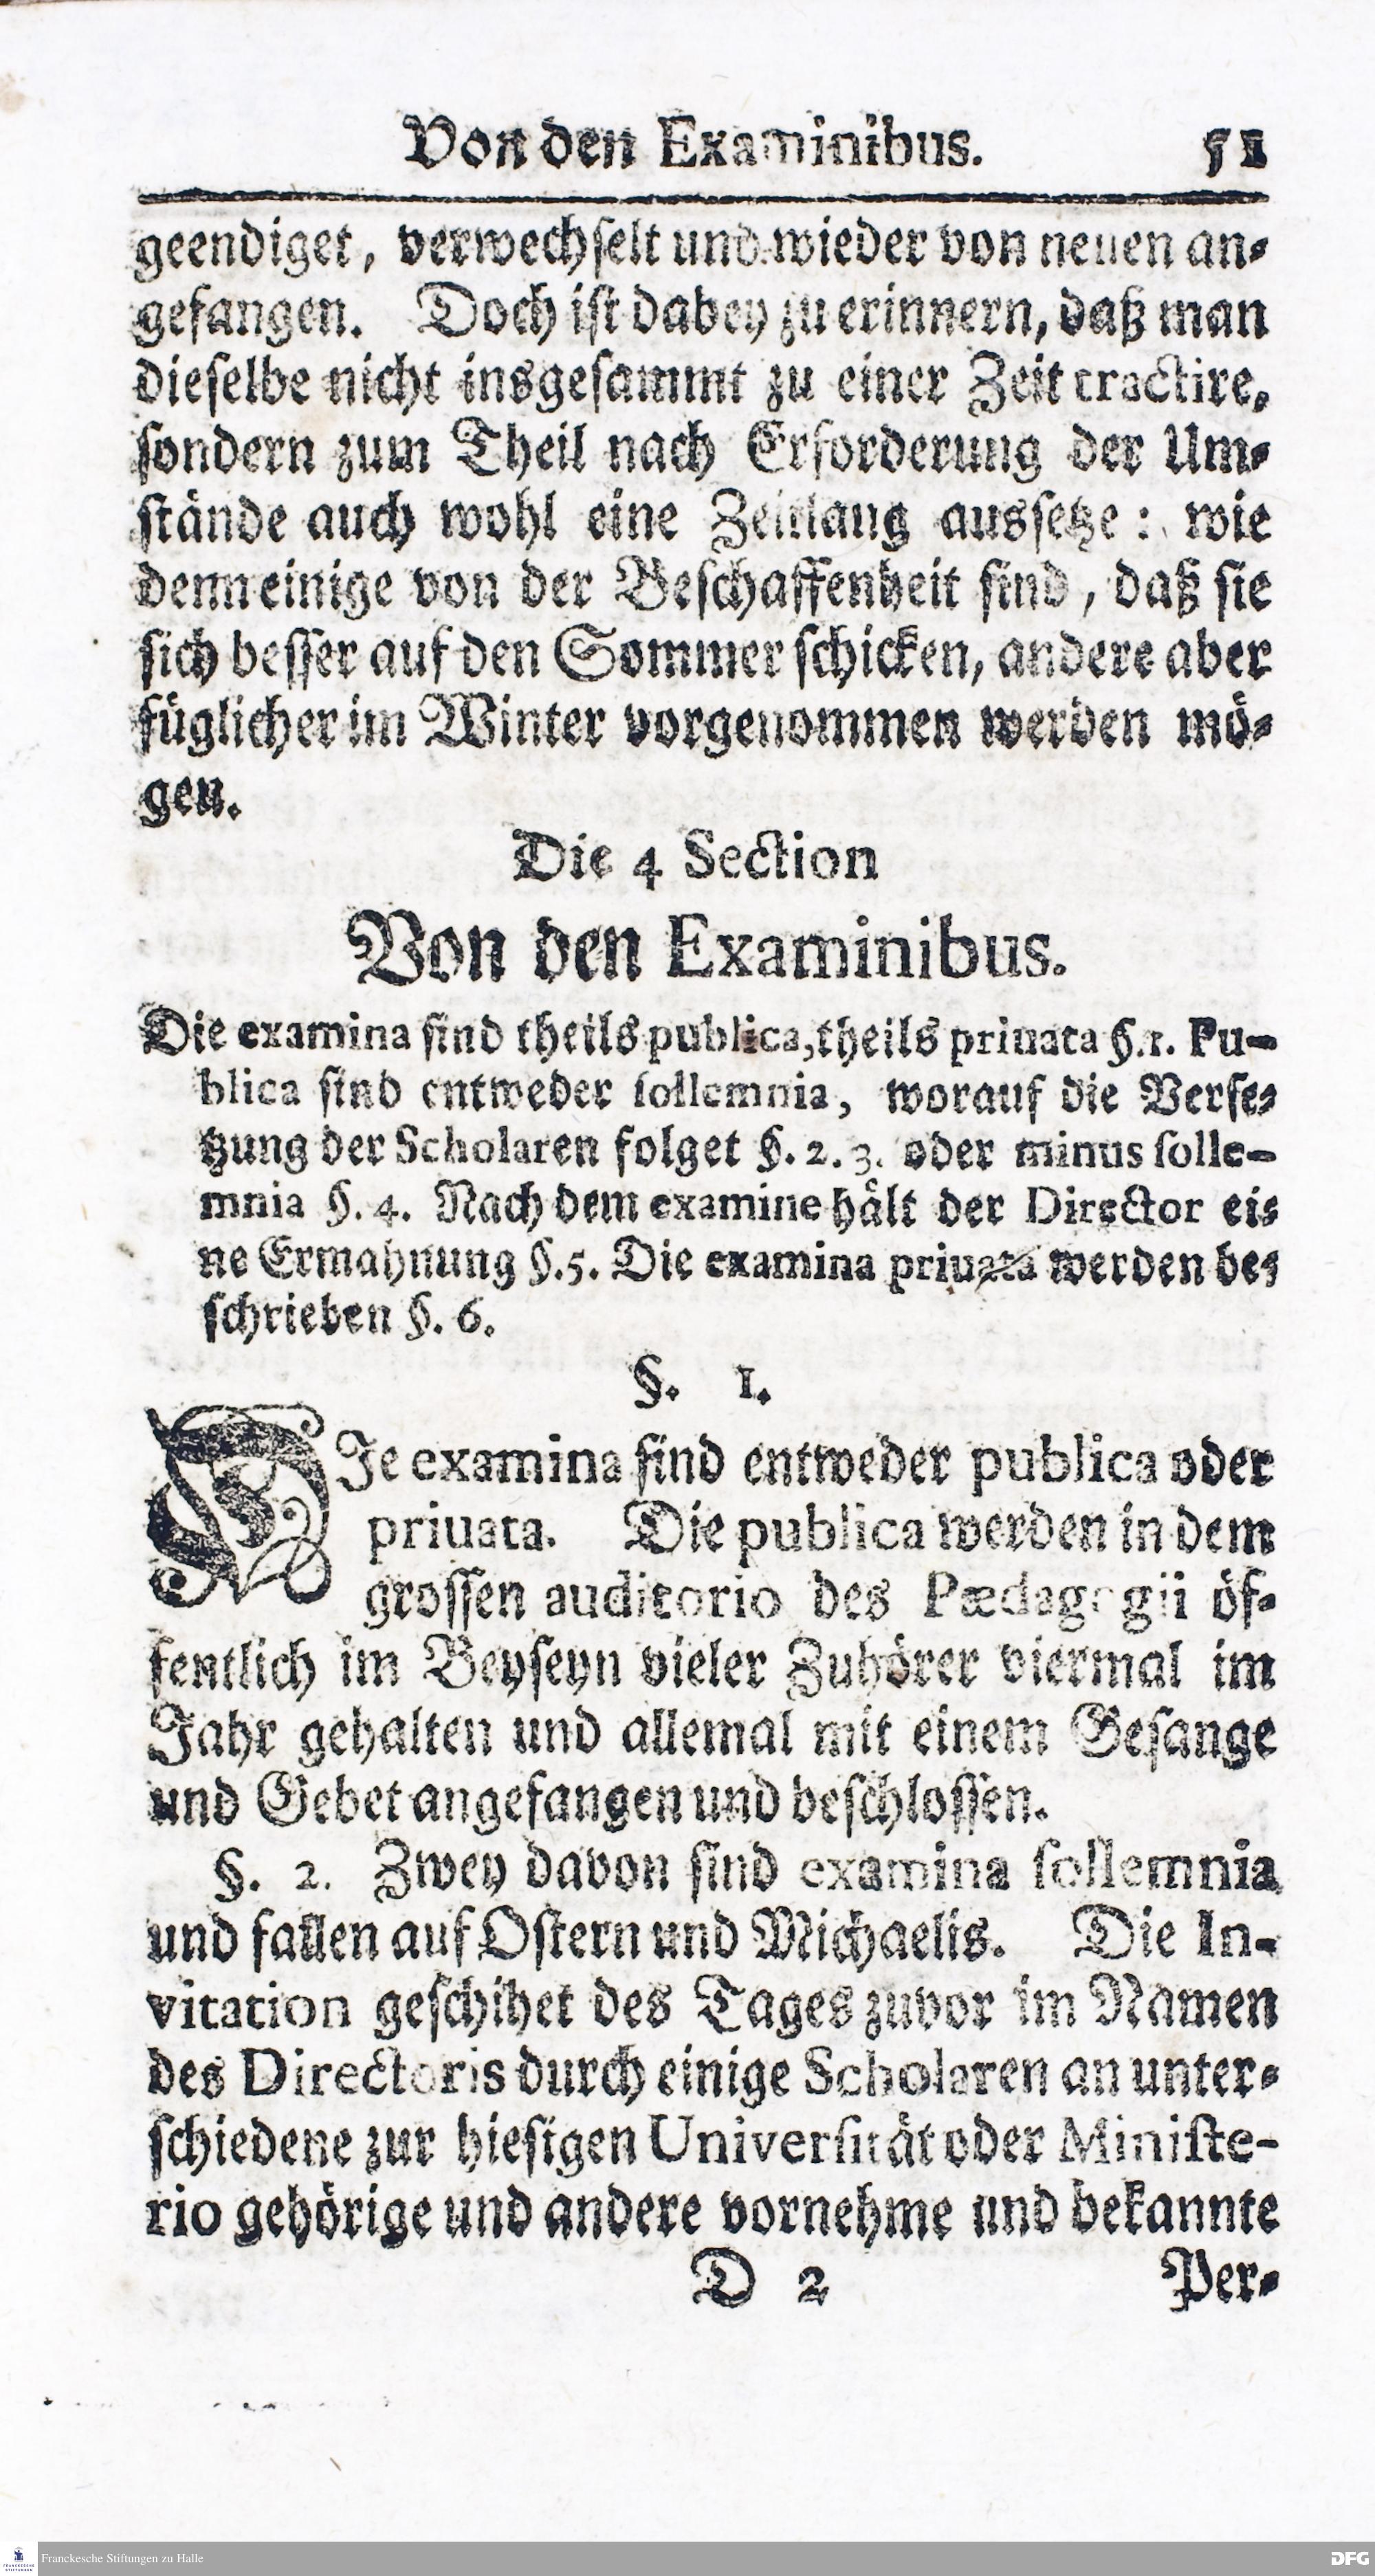 Von den Examinibus. 51
geendiget, verwechſelt und wieder von neuen an-
gefangen. Doch iſt dabey zu erinnern, daß man
dieſelbe nicht insgeſammt zu einer Zeit tractire,
ſondern zum Theil nach Erforderung der Um-
ſtände auch wohl eine Zeitlang ausſetze: wie
denn einige von der Beſchaffenheit ſind, daß ſie
ſich beſſer auf den Sommer ſchicken, andere aber
füglicher im Winter vorgenommen werden mö-
gen.
Die 4 Section
Von den Examinibus.
Die examina ſind theils publica, theils priuata §. 1. Pu-
blica ſind entweder ſollemnia, worauf die Verſe-
tzung der Scholaren folget §. 2. 3. oder minus ſolle-
mnia §. 4. Nach dem examine hält der Director ei-
ne Ermahnung §. 5. Die examina priuata werden be-
ſchrieben §. 6.
§. 1.
DIe examina ſind entweder publica oder
priuata. Die publica werden in dem
groſſen auditorio des Pædagogii öf-
fentlich im Beyſeyn vieler Zuhörer viermal im
Jahr gehalten und allemal mit einem Geſange
und Gebet angefangen und beſchloſſen.
§. 2. Zwey davon ſind examina ſollemnia
und fallen auf Oſtern und Michaelis. Die In-
vitation geſchihet des Tages zuvor im Namen
des Directoris durch einige Scholaren an unter-
ſchiedene zur hieſigen Univerſität oder Miniſte-
rio gehörige und andere vornehme und bekannte
D 2 Per-
Franckesche Stiftungen zu Halle
FRANCKESCHE
STIFTUNGEN
DFG